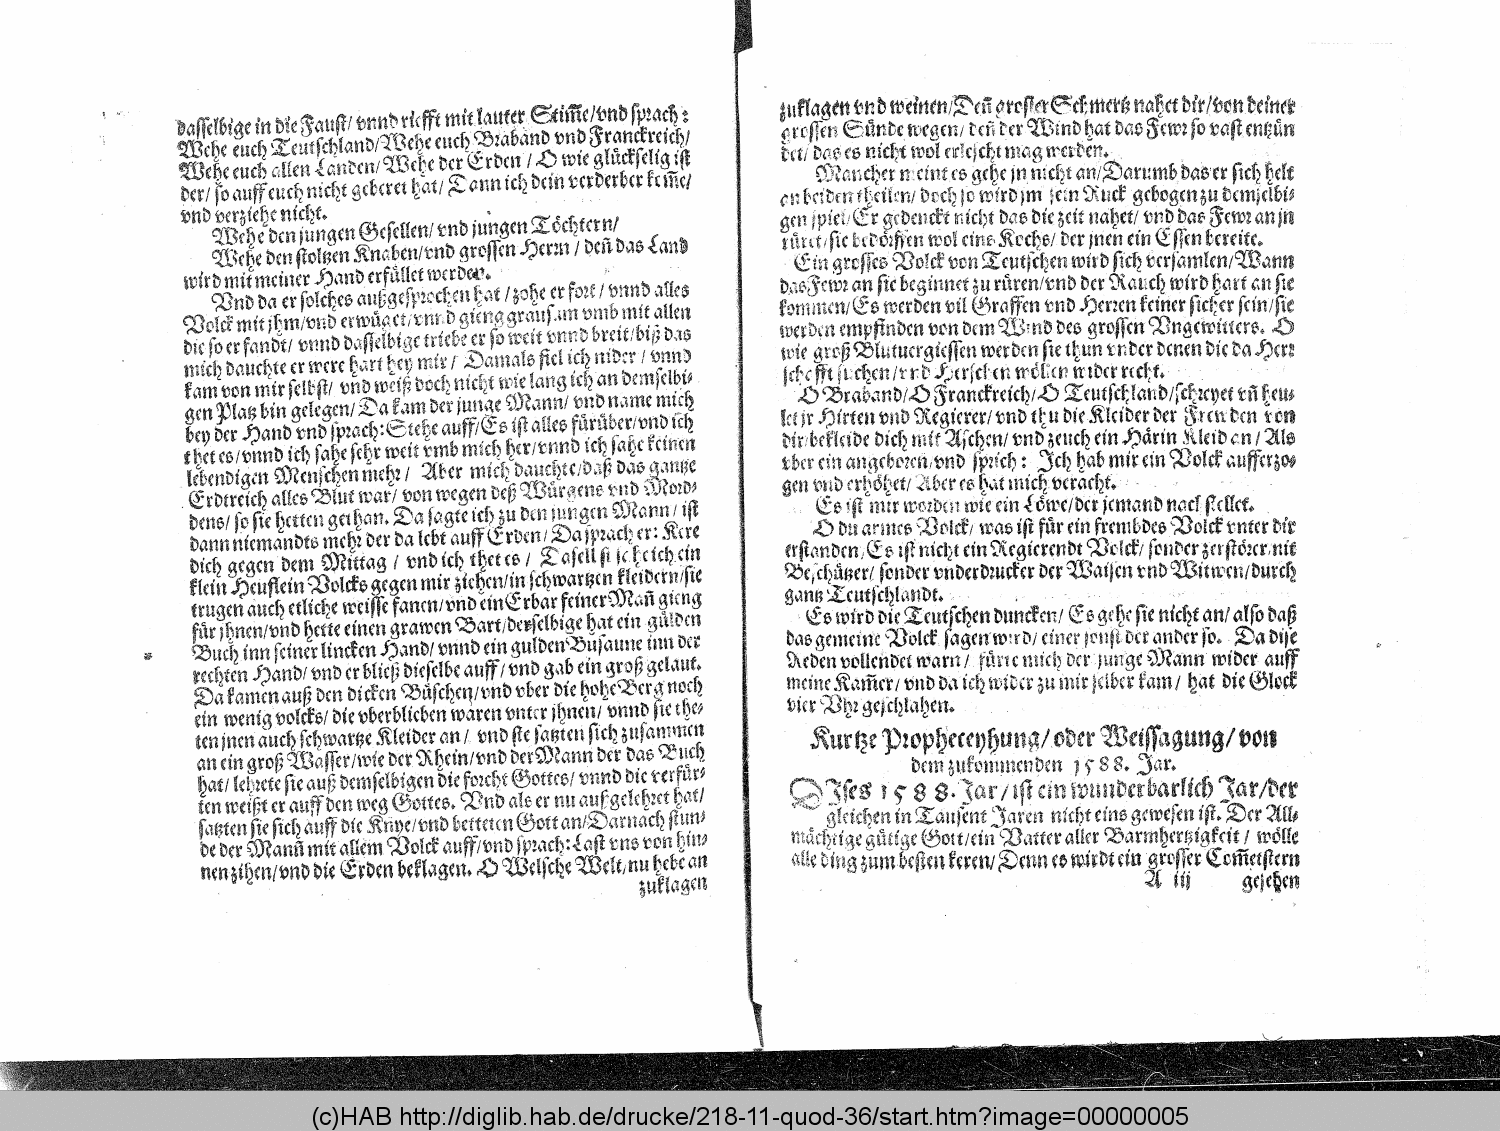 dasselbige in die Faust/ vnnd riefft mit lauter Stim̃e/vnd sprach:
Wehe euch Teutschland/Wehe euch Braband vnd Franckreich/
Wehe euch allen Landen/Wehe der Erden / O wie glückselig ist
der/ so auff euch nicht geberet hat/ Dann ich dein verderber kom̃e/
vnd verziehe nicht.
Wehe den jungen Gesellen/ vnd jungen Töchtern/
Wehe den stoltzen Knaben/vnd grossen Herrn / deñ das Land
wird mit meiner Hand erfüllet werden.
Vnd da er solches außgesprochen hat / zohe er fort / vnnd alles
Volck mit jhm/vnd erwüget/vnnd gieng grausam vmb mit allen
die so er fandt/ vnnd dasselbige triebe er so weit vnnd breit/biß das
mich dauchte er were hart bey mir / Damals fiel ich nider / vnnd
kam von mir selbst/ vnd weiß doch nicht wie lang ich an demselbi-
gen Platz bin gelegen/ Da kam der junge Mann/ vnd name mich
bey der Hand vnd sprach: Stehe auff/Es ist alles fürüber/vnd ich
thet es/vnnd ich sahe sehr weit vmb mich her/vnnd ich sahe keinen
lebendigen Menschen mehr / Aber mich dauchte/daß das gantze
Erdtreich alles Blut war/ von wegen deß Würgens vnd Mord-
dens/ so sie hetten gethan. Da sagte ich zu den jungen Mann / ist
dann niemandts mehr der da lebt auff Erden/ Da sprach er: Kere
dich gegen dem Mittag / vnd ich thet es / sahe ich ein
klein Heuflein Volcks gegen mir ziehen/in schwartzen kleidern/sie
trugen auch etliche weisse fanen/vnd ein Erbar feiner Mañ gieng
für jhnen/vnd hette einen grawen Bart/derselbige hat ein gülden
Buch inn seiner lincken Hand/ vnnd ein gulden Busaune inn der
rechten Hand/ vnd er bließ dieselbe auff / vnd gab ein groß gelaut.
Da kamen auß den dicken Büschen/vnd vber die hohe Berg noch
ein wenig volcks/ die vberblieben waren vnter jhnen/ vnnd sie the-
ten jnen auch schwartze Kleider an / vnd sie satzten sich zusammen
an ein groß Wasser/wie der Rhein/vnd der Mann der das Buch
hat/ lehrete sie auß demselbigen die forcht Gottes/ vnnd die verfür-
ten weißt er auff den weg Gottes. Vnd als er nu außgelehret hat/
satzten sie sich auff die Knye/vnd betteten Gott an/Darnach stun-
de der Mann mit allem Volck auff/vnd sprach: Last vns von hin-
nen zihen/vnd die Erden beklagen. O Welsche Welt/nu hebe an
zuklagen
zuklagen vnd weinen/Deñ grosser Schmertz nahet dir/von deiner
grossen Sünde wegen/ deñ der Wind hat das Fewr so vast entzün
det/ das es nicht wol erlescht mag werden.
Mancher meint es gehe jn nicht an/Darumb das er sich helt
en beiden theilen/ doch so wird jm sein Ruck gebogen zu demselbi-
gen spiel/ Er gedenckt nicht das die zeit nahet/ vnd das Fewr an jn
rüret/sie bedörffen wol eins Kochs/ der jnen ein Essen bereite.
Ein grosses Volck von Teutschen wird sich versamlen/Wann
das Fewr an sie beginnet zu rüren/vnd der Rauch wird hart an sie
kommen/Es werden vil Graffen vnd Herren keiner sicher sein/sie
werden empfinden von dem Wind des grossen Vngewitters. O
wie groß Blutuergiessen werden sie thun vnder denen die da Herr
schafft suchen/vnd Herschen wöllen wider recht.
O Braband/O Franckreich/O Teutschland/schreyet vñ heu-
let jr Hirten vnd Regierer/vnd thu die Kleider der Frewden von
dir/bekleide dich mit Aschen/ vnd zeuch ein Härin Kleid an/ Als
vber ein angeboren/vnd sprich: Ich hab mir ein Volck aufferzo-
gen vnd erhöhet/ Aber es hat mich veracht.
Es ist mir worden wie ein Löwe/der jemand nach stellet.
O du armes Volck/ was ist für ein frembdes Volck vnter dir
erstanden/Es ist nicht ein Regierendt Volck/ sonder zerstörer/nit
Beschützer/ sonder vnderdrucker der Waisen vnd Witwen/durch
gantz Teutschlandt.
Es wird die Teutschen duncken/ Es gehe sie nicht an/ also daß
das gemeine Volck sagen wird/ einer sonst der ander so. Da dise
Reden vollendet warn/ fürte mich der junge Mann wider auff
meine Kam̃er/ vnd da ich wider zu mir selber kam/ hat die Glock
vier Vhr geschlahen.
Kurtze Propheceyhung/ oder Weissagung/ von
dem zukommenden 1588. Jar.
DIses 1588. Jar/ ist ein wunderbarlich Jar/der
gleichen in Tausent Jaren nicht eins gewesen ist. Der All-
mächtige gütige Gott/ein Vatter aller Barmhertzigkeit / wölle
alle ding zum besten keren/ Denn es wirdt ein grosser Com̃etstern
A iij gesehen
(c)HAB http://diglib.hab.de/drucke/218-11-quod-36/start.htm?image=00000005